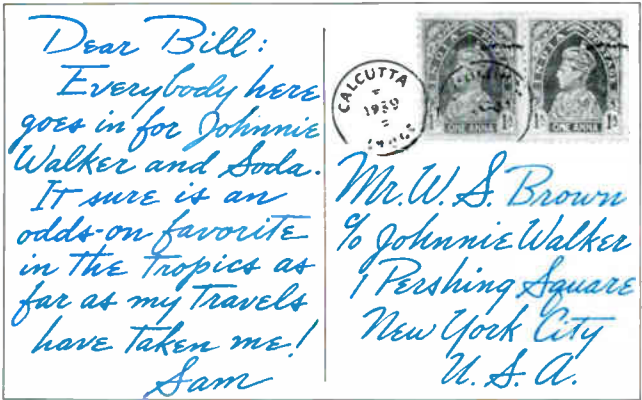 Dear Bill:
Everybody here
goes in for Johnnie
Walker and Soda.
It sure is an
odds-on favorite
in the Tropics as
far as my Travels
have Taken me!
Sam
CALCUTTA
1939
INDIA POSTAGE
ONE ANNA
ONE ANNA
Mr. W. S. Brown
c/o Johnnie Walker
1 Pershing Square
New York City
U. S. A.